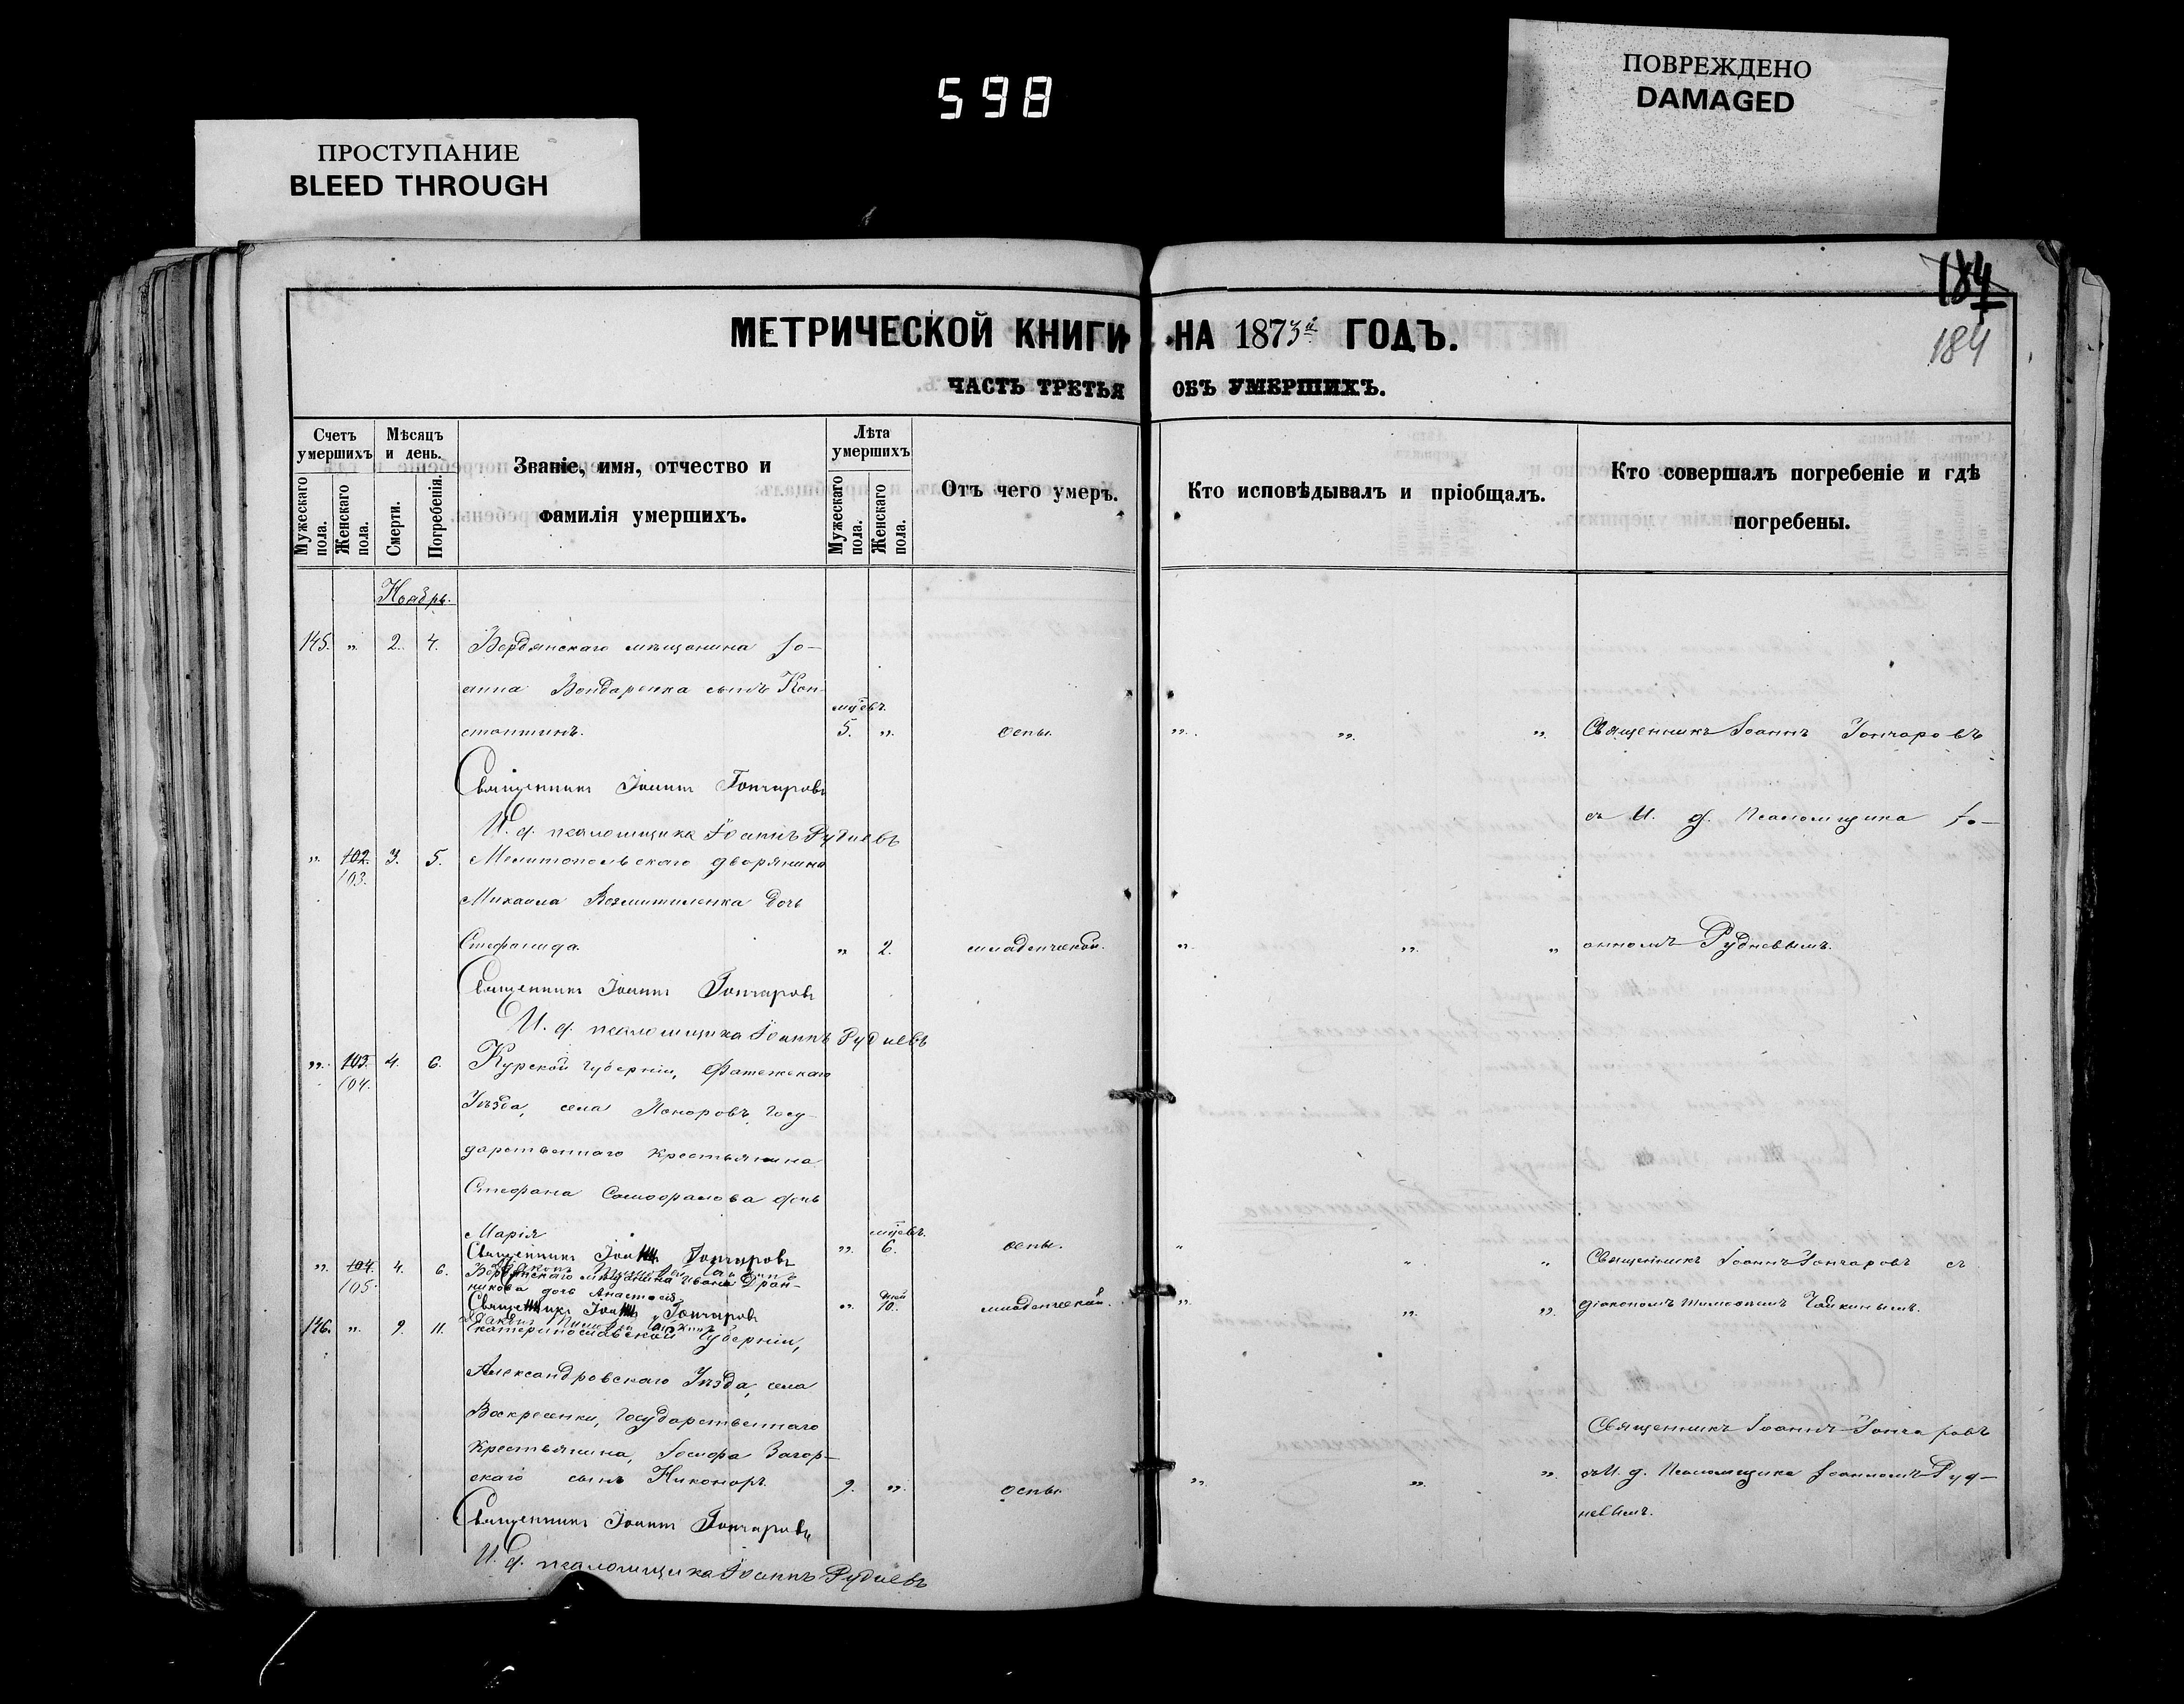 598
ПРОСТУПАНИЕ
BLEED THROUGH
ПОВРЕЖДЕНО
DAMAGED
184
184
МЕТРИЧЕСКОЙ КНИГИ НА 1873й ГОДЪ.
ЧАСТЬ ТРЕТЬЯ ОБЪ УМЕРШИХЪ.
Счетъ умершихъ
Мужескаго пола.
Женскаго пола.
Мѣсяцъ и день.
Смерти.
Погребенія.
Званіе, имя, отчество и
фамилія умершихъ.
Лѣта умершихъ
Мужескаго пола.
Женскаго пола.
Отъ чего умеръ.
Кто исповѣдывалъ и пріобщалъ.
Кто совершалъ погребеніе и гдѣ
погребены.
Ноябрь.
145. „ 2. 4. Бердянскаго мѣщанина Іо-
анна Бондаренка сынъ Кон-
мцевъ.
стантинъ. 5. „ оспы. „ „ „ Священникъ Іоаннъ Гончаровъ
Священникъ Іоаннъ Гончаровъ
съ И. д. Псаломщика Іо-
И. д. псаломщика Іоаннъ Рудневъ
„ 102. 3. 5. Мелитопольскаго дворянина
103.
Михаила дочь
Стефанида. „ 2. младенческой. „ „ „ анномъ Рудневымъ.
Священникъ Іоаннъ Гончаровъ
И. д. псаломщика Іоаннъ Рудневъ
„ 103. 4. 6. Курской губерніи, Фатежскаго
104.
Уѣзда, села Госу-
дарственнаго Крестьянина
Стефана дочь
Марія „ мцевъ. 6. оспы. „ „ „ Священникъ Іоаннъ Гончаровъ съ
Священникъ Іоаннъ Гончаровъ
„ 104. 4. 6. Бердянскаго мѣщанина Ивана
105.
дочь Анастасія „ дней 10. младенческой. „ „ „ діакономъ Тимофеемъ Чайкинымъ.
Священникъ Іоаннъ Гончаровъ
146. „ 9. 11. Екатеринославской Губерніи,
Александровскаго Уѣзда, села
Воскресенки, Государственнаго
Священникъ Іоаннъ Гончаровъ
Крестьянина, Іосифа Загор-
скаго сынъ Никоноръ. 9. „ оспы. „ „ „ съ И. д. Псаломщика Іоанномъ Руд-
невымъ.
Священникъ Іоаннъ Гончаровъ
И. д. псаломщика Іоаннъ Рудневъ